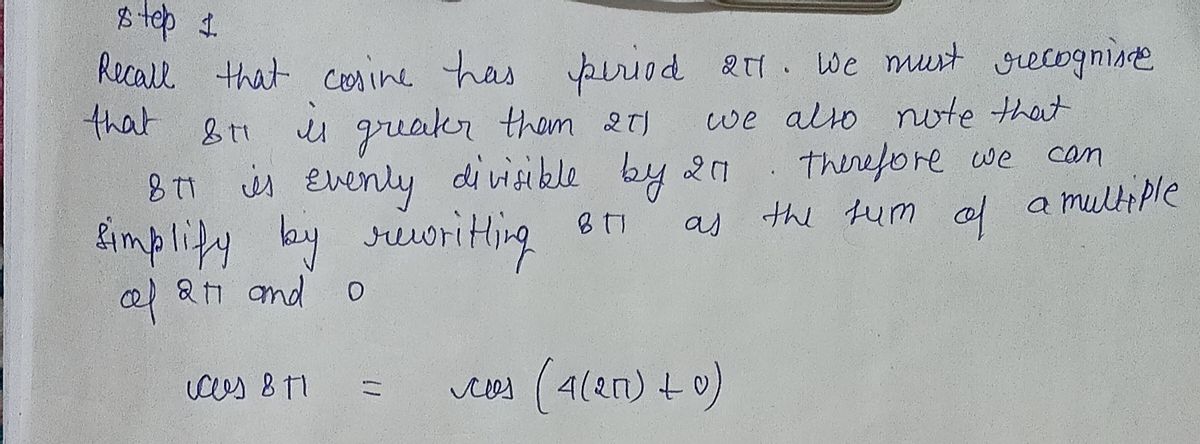 Step 1
Recall that cosine has period 2π. We must recognise
that 8π is greater them 2π we also note that
8π is evenly divisible by 2π. therefore we can
simplify by rewritting 8π as the sum of a multiple
of 2π and 0
cos 8π = cos (4(2π) + 0)